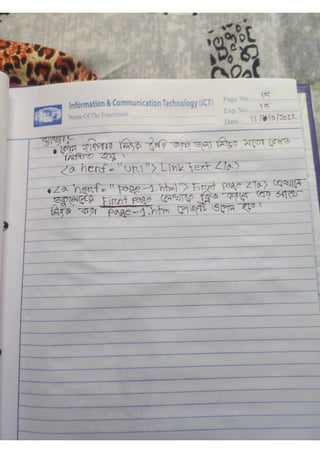 Information & Communication Technology (ICT)
Name Of The Experiment
Page No: 15
Exp No: 15
Date: 11/10/2022
ব্যাখ্যাঃ
• কোন হাইপার লিংক তৈরি করার জন্য নিচের মতো কোড
লিখতে হয়
<a herf="url"> Link text </a>
• <a herf="page-1.htm"> First page </a> এখানে
First page লেখাতে ক্লিক করলে এর সাথে
লিংক করা page-1.htm পেজটি ওপেন হবে।